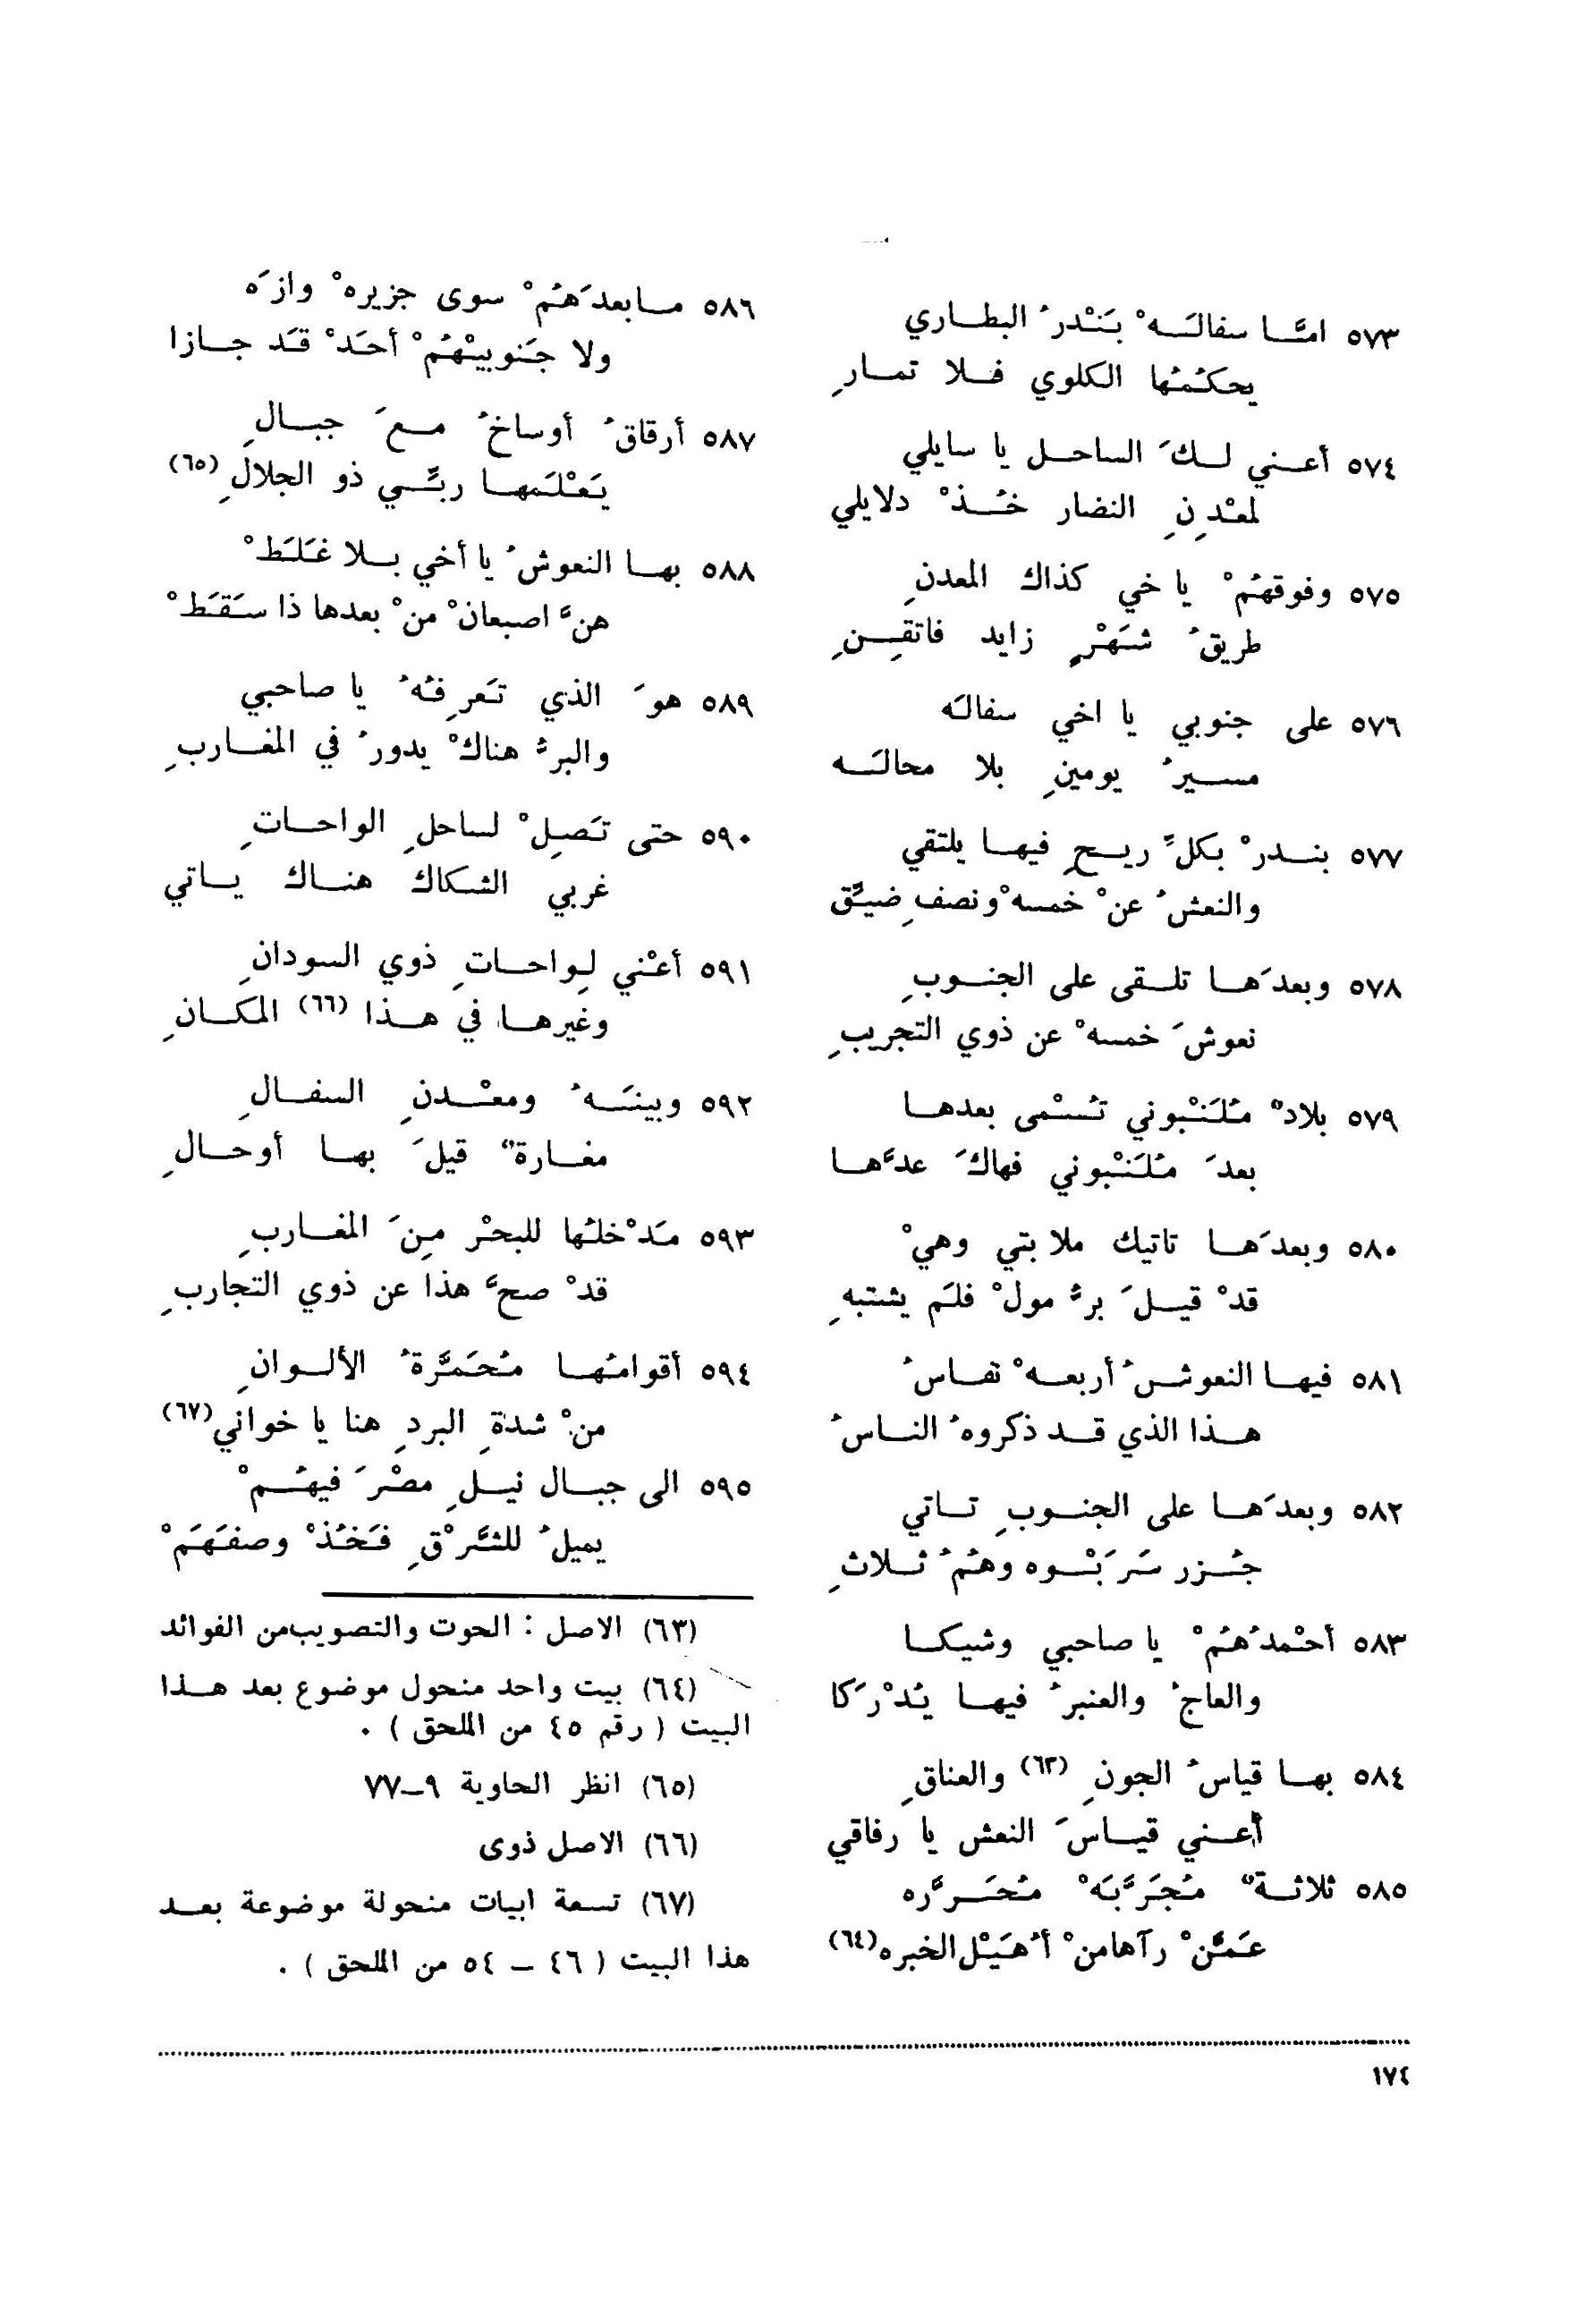 ٥٧٣ امَّا سفالَه ْ بَنْدر ُ البطاري
يحكُمُها الكلوي فلا تمارِ
٥٧٤ أعني لك َ الساحل يا سايلي
لمعْدِنِ النضار خُذ ْ دلايلي
٥٧٥ وفوقهُم ْ يا خي كذاك المعدنِ
طريق ُ شَهْرٍ زايد فاتقِنِ
٥٧٦ على جنوبي يا اخي سفالَه
مسير ُ يومينِ بلا محالَه
٥٧٧ بندر ْ بكل ِّ ريحٍ فيها يلتقي
والنعش ُ عن ْ خمسه ْ ونصفِ ضيِّق
٥٧٨ وبعد َها تلقى على الجنوبِ
نعوش َ خمسه ْ عن ذوي التجريبِ
٥٧٩ بلاد ٌ مُلَنْبوني تُسْمى بعدها
بعد َ مُلَنْبوني فهاك َ عد َّها
٥٨٠ وبعد َها تاتيك ملا بتي وهي ْ
قد ْ قيل َ بر ُّ مول ْ فلَم يشتبهِ
٥٨١ فيها النعوش ُ أربعه ْ تقاس ُ
هذا الذي قد ذكروه ُ الناس ُ
٥٨٢ وبعد َها على الجنوبِ تاتي
جُزر سَر َبْوه وهُم ُ ثلاثِ
٥٨٣ أحْمد ُهُم ْ يا صاحبي وشيكا
والعاج ُ والعنبر ُ فيها يُد ْر َكا
٥٨٤ بها قياس ُ الجونِ (٦٣) والعناقِ
أعني قياس َ النعش يا رفاقي
٥٨٥ ثلاثة ٌ مُجَر َّبَه ْ مُحَر َّره
عَمَّن ْ رآها من ْ أ ُهَيْل الخبره (٦٤)
٥٨٦ ما بعد َهُم ْ سوى جزيره ْ واز َه
ولا جَنوبيْهُم ْ أحَد ْ قَد جازا
٥٨٧ أرقاق ُ أوساخ ُ مع َ جبالِ
يَعْلَمها ربِّي ذو الجلالِ (٦٥)
٥٨٨ بها النعوش ُ يا أخي بلا غَلَط ْ
هن َّ اصبعان ْ من ْ بعدها ذا سَقَط ْ
٥٨٩ هو َ الذي تَعرِفُه ُ يا صاحبي
والبر ُّ هناك ْ يدور ُ في المغاربِ
٥٩٠ حتى تَصِل ْ لساحلِ الواحاتِ
غربي الشكاك هناك ياتي
٥٩١ أعْني لِواحاتِ ذوي السودانِ
وغيرها في هذا (٦٦) المكانِ
٥٩٢ وبينَه ُ ومعْدنِ السفالِ
مغارة ٌ قيل َ بها أوحالِ
٥٩٣ مَد ْخلُها للبحْر مِن َ المغاربِ
قد ْ صح َّ هذا عن ذوي التجاربِ
٥٩٤ أقوامُها مُحَمَّرة ُ الألوانِ
من ْ شدةِ البردِ هنا يا خواني (٦٧)
٥٩٥ الى جبال نيلِ مصْر َ فيهُم ْ
يميل ُ للشَّر ْقِ فَخُذ ْ وصفَهَم ْ
(٦٣) الاصل : الحوت والتصويب من الفوائد
(٦٤) بيت واحد منحول موضوع بعد هذا
البيت ( رقم ٤٥ من الملحق ) .
(٦٥) انظر الحاوية ٩ــ٧٧
(٦٦) الاصل ذوى
(٦٧) تسعة ابيات منحولة موضوعة بعد
هذا البيت ( ٤٦ ــ ٥٤ من الملحق ) .
١٧٤